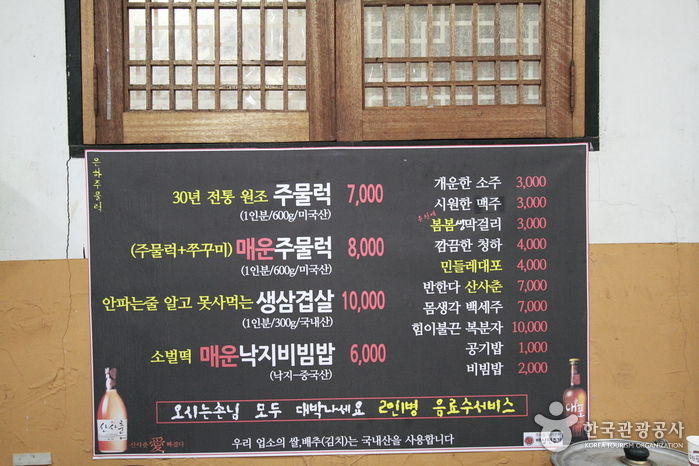 은하주물럭
30년 전통 원조 주물럭 7,000
(1인분/600g/미국산)
(주물럭+쭈꾸미) 매운주물럭 8,000
(1인분/600g/미국산)
안파는줄 알고 못사먹는 생삼겹살 10,000
(1인분/300g/국내산)
소벌떡 매운낙지비빔밥 6,000
(낙지-중국산)
개운한 소주 3,000
시원한 맥주 3,000
봄봄 쌀막걸리 3,000
깜끔한 청하 4,000
민들레대포 4,000
반한다 산사춘 7,000
몸생각 백세주 7,000
힘이불끈 복분자 10,000
공기밥 1,000
비빔밥 2,000
오시는손님 모두 대박나세요 2인1병 음료수서비스
산사춘
산사춘 愛 빠졌다
대포
우리 업소의 쌀,배추(김치)는 국내산을 사용합니다
한국관광공사
KOREA TOURISM ORGANIZATION